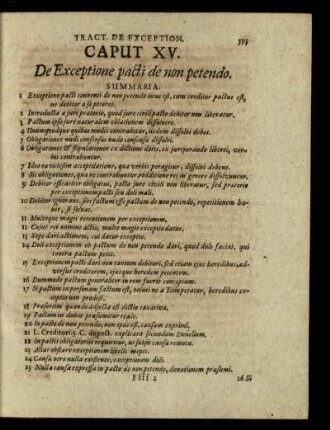 TRACT. DE EXCEPTION.
555
CAPUT XV.
De Exceptione pacti de non petendo.
SUMMARIA.
1 Exceptione pacti conventi de non petendo locus est, cum creditor pactus est,
ne debitor à se peteret.
2 Introducta à jure prætorio, quod jure civili pacto debitor non liberatur.
3 Pactum ipso jure naturalem obligationem dissolvere.
4 Unumquodque quibus modis contrahatur, iisdem dissolvi debet.
5 Obligationes nudi consensus nudo consensu dissolvi.
6 Obligationes & stipulationes ex dictione datis, ex jurejurando liberti, verbis contrahuntur.
7 Ideoque nicissim acceptilatione, quæ verbis peragitur, dissolvi debent.
8 Sic obligationes, quæ re contrahuntur redditione rei in genere dissolvuntur.
9 Debitor efficaciter obligatus, pacto jure civili non liberatur, sed prætorio
per exceptionem pacti seu doli mali.
10 Debitor ignorans, sibi factum esse pactum de non petendo, repetitionem habet, si solvat.
11 Multoque magis retentionem per exceptionem.
12 Cujus rei nomine actio, multo magis exceptio datur.
13 Sæpe dari actionem, cui datur exceptio.
14 Doli exceptionem ob pactum de non petendo dari, quod dolo faciat, qui
contra pactum petit.
15 Exceptionem pacti dari non tantum debitori, sed etiam ejus heredibus, adversus creditorem, ejusque heredem petentem.
16 Dummodo pactum generaliter in rem fuerit conceptum.
17 Si pactum in personam factum est, veluti ne à Te petatur, heredibus exceptio non prodest.
18 Præsertim quando adjecta est dictio taxativa.
19 Pactum in dubio præsumitur reale.
20 In pacto de non petendo, non opus est, causam exprimi.
21 L. Creditori. 15. C. de pact. explicata secundum Donellum.
22 In pactis obligatoriis requiritur, ut subsit causa remota.
23 Alias obstare exceptionem libelli inepti.
24 Causa vero nulla existente, exceptionem doli.
25 Nulla causa expressa in pacto de non petendo, donationem præsumi.
Ffff 2
26 Si